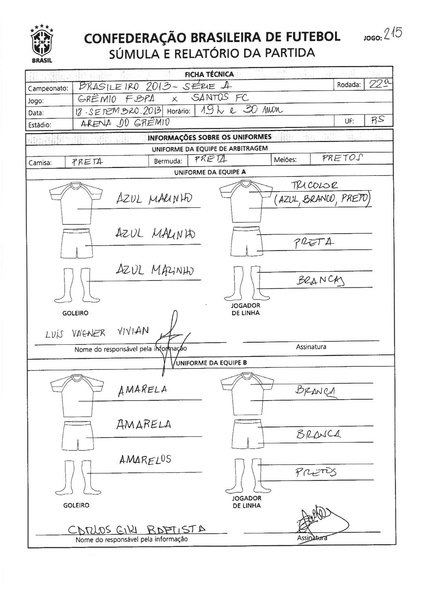 CONFEDERAÇÃO BRASILEIRA DE FUTEBOL JOGO: 215
SÚMULA E RELATÓRIO DA PARTIDA
BRASIL
FICHA TÉCNICA
Campeonato: BRASILEIRO 2013 - SÉRIE A Rodada: 22ª
Jogo: GRÊMIO FBPA X SANTOS FC
Data: 18-SETEMBRO 2013 Horário: 19h e 30 min
Estádio: ARENA DO GRÊMIO UF: RS
INFORMAÇÕES SOBRE OS UNIFORMES
UNIFORME DA EQUIPE DE ARBITRAGEM
Camisa: PRETA Bermuda: PRETA Meiões: PRETOS
UNIFORME DA EQUIPE A
AZUL MARINHO TRICOLOR
(AZUL, BRANCO, PRETO)
AZUL MARINHO PRETA
AZUL MARINHO BRANCAS
GOLEIRO JOGADOR DE LINHA
LUIS VAGNER VIVIAN
Nome do responsável pela informação Assinatura
UNIFORME DA EQUIPE B
AMARELA BRANCA
AMARELA BRANCA
AMARELOS PRETOS
GOLEIRO JOGADOR DE LINHA
CARLOS BAPTISTA
Nome do responsável pela informação Assinatura